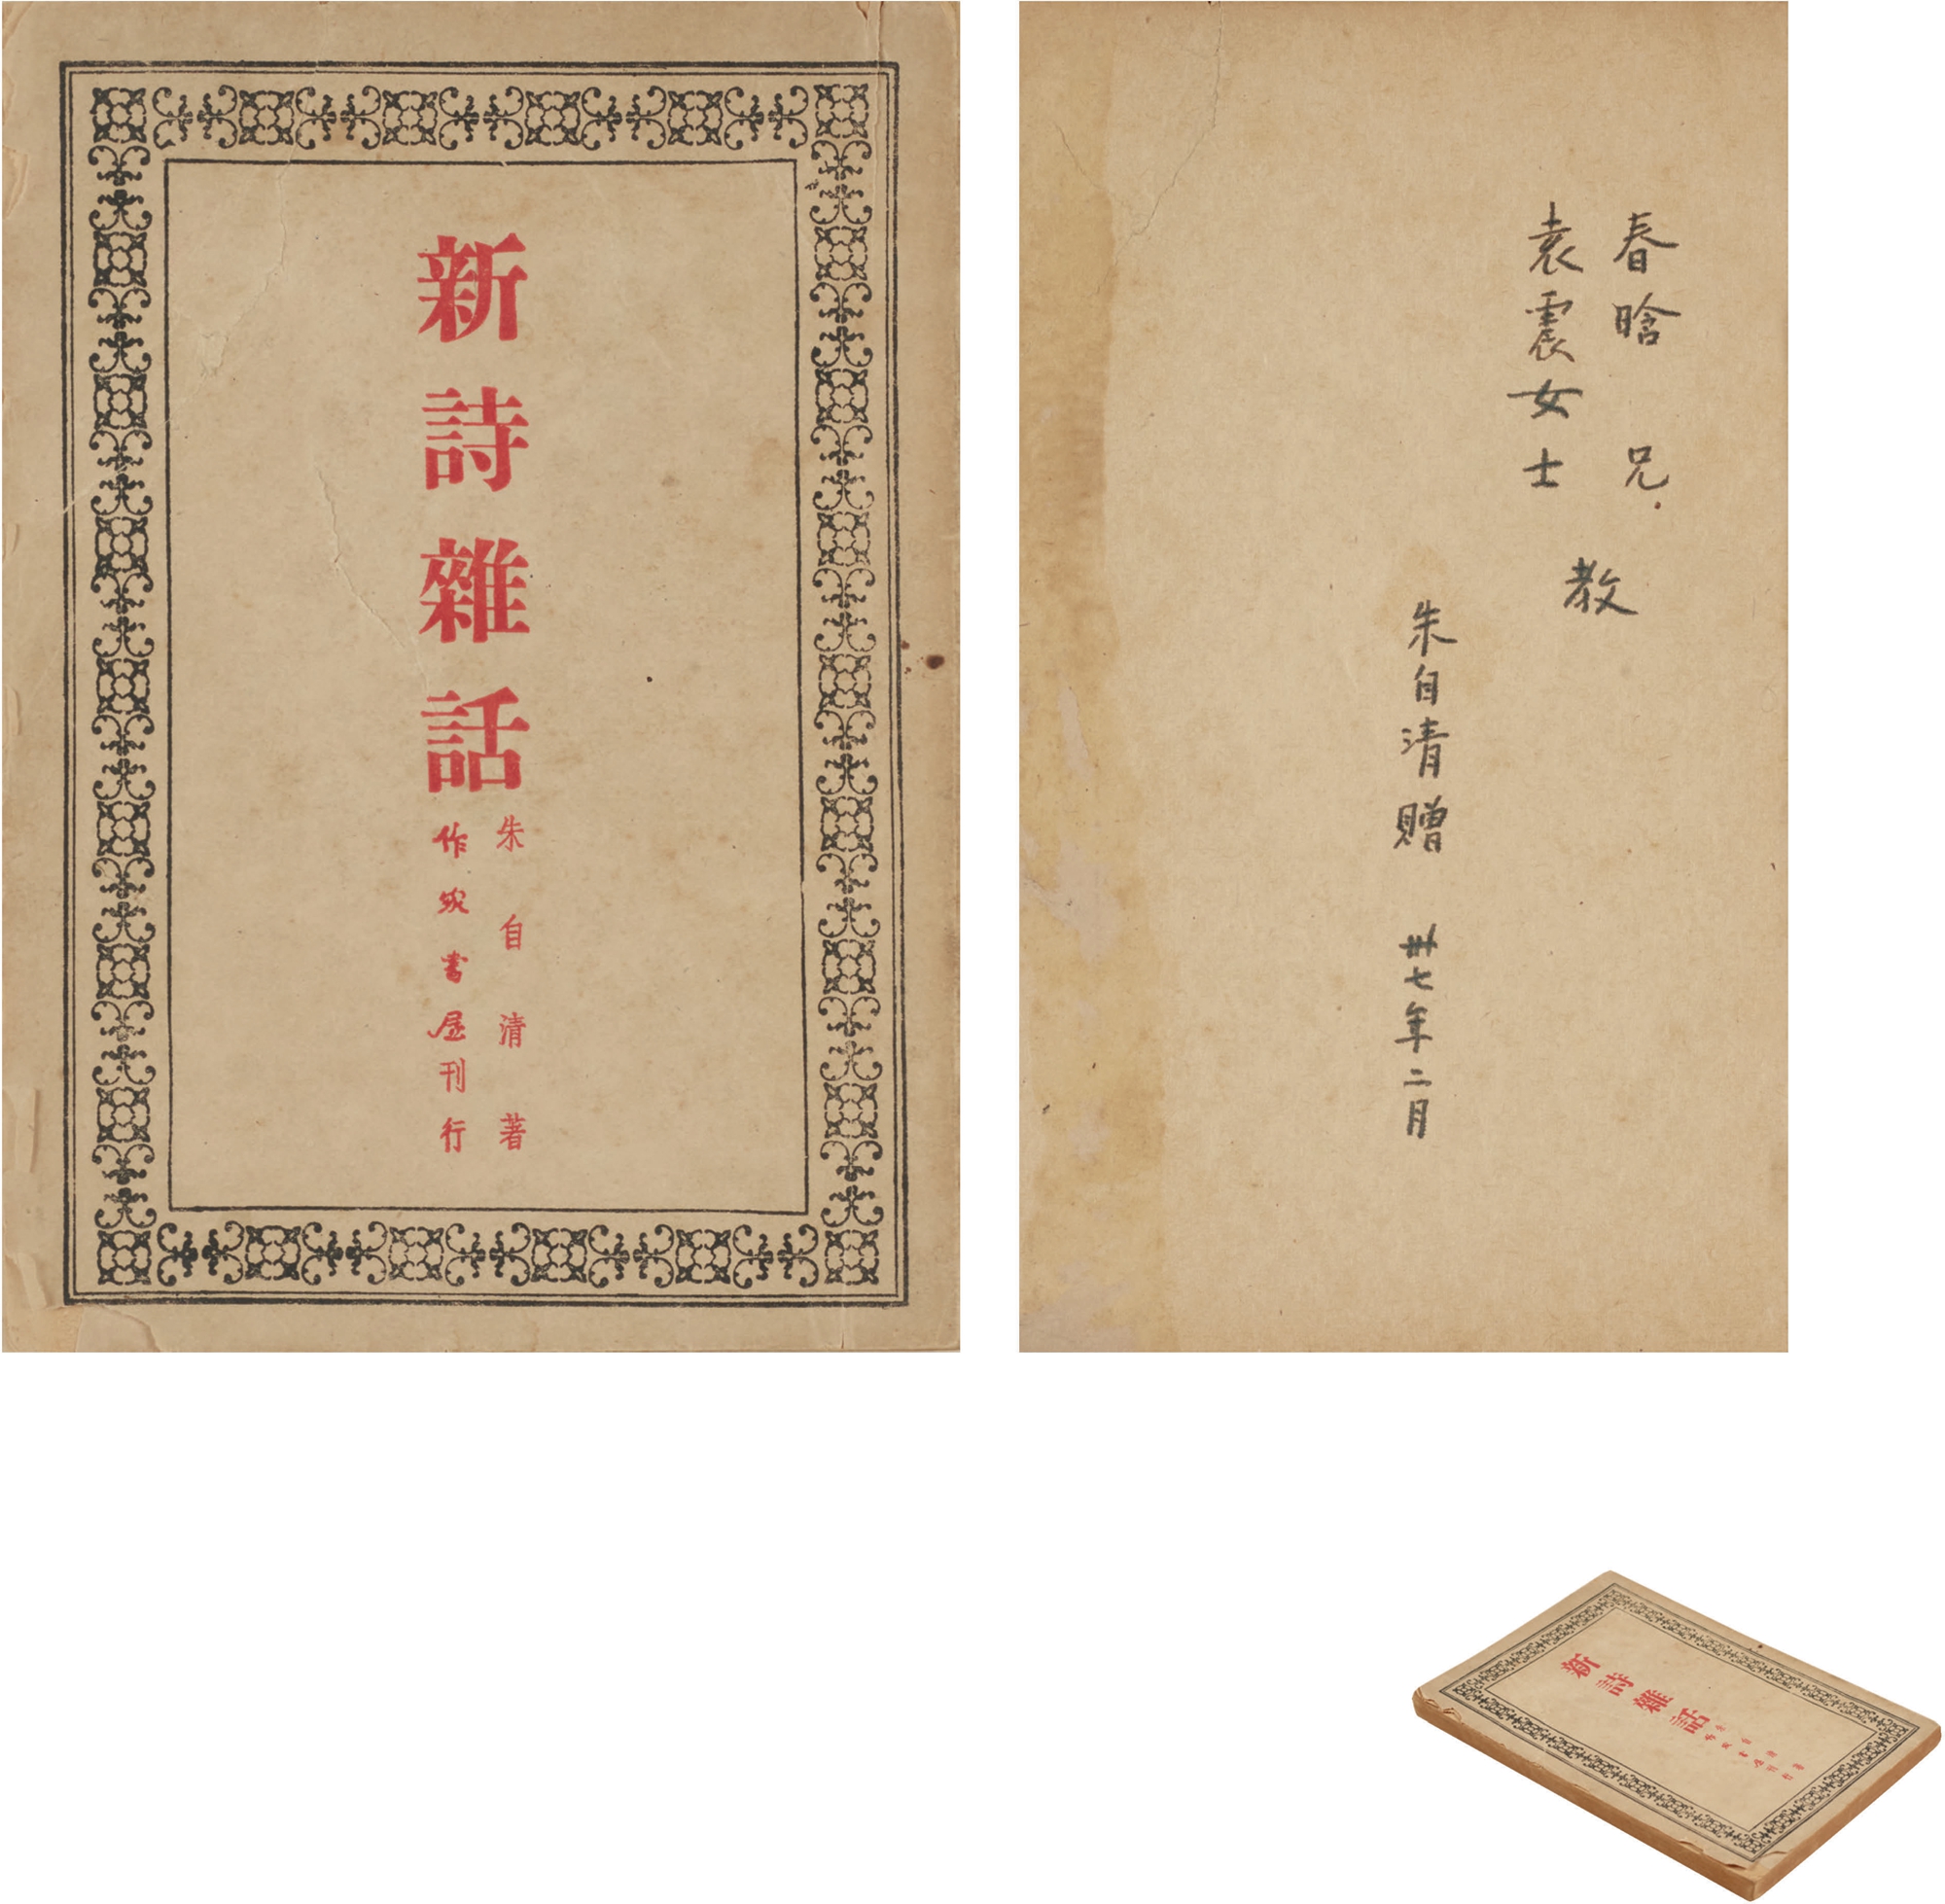 新詩雜話
朱自清著
作家書屋刊行
春晗兄
袁震女士
教
朱自清贈
卅七年二月
新詩雜話
朱自清著
作家書屋刊行